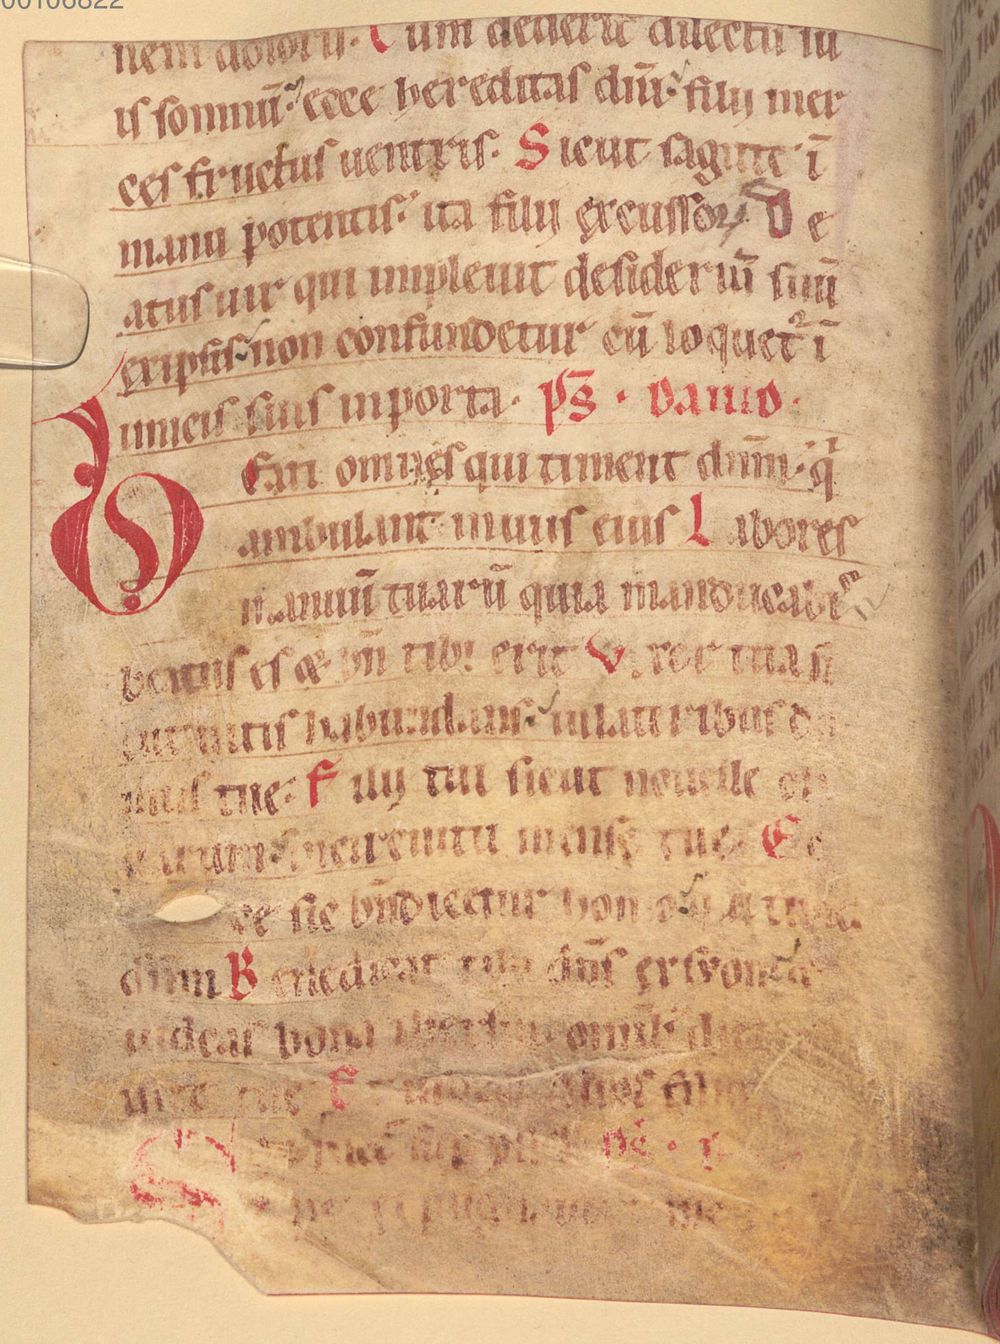 00106822
nem doloris. Cum dederit dilectis su
is somnū. ecce hereditas dn̄i. filij mer
ces fructus uentris. Sicut sagitte ī
manu potentis. ita filij excussoꝝ. Be
atus uir qui impleuit desideriū suū
ex ipsis. non confundetur cū loquet̄ ī
imicis suis in porta. ps̄. Dauid.
Beati omnes qui timent dn̄m. q̄
ambulant in uiis eius Labores
manuū tuarū quia manducabis
beatus es & bn̄ tibi erit Vxor tua si
cut uitis habundans. in lateribus do
mus tue. Filij tui sicut nouelle oli
uarum. in circuitu mense tue. Ec
ce sic bn̄dicetur homo qui timet
dn̄m Benedicat tibi dn̄s ex syon &
uideas bona omnib; die
uite tue Et uideas filios filior
ps̄.